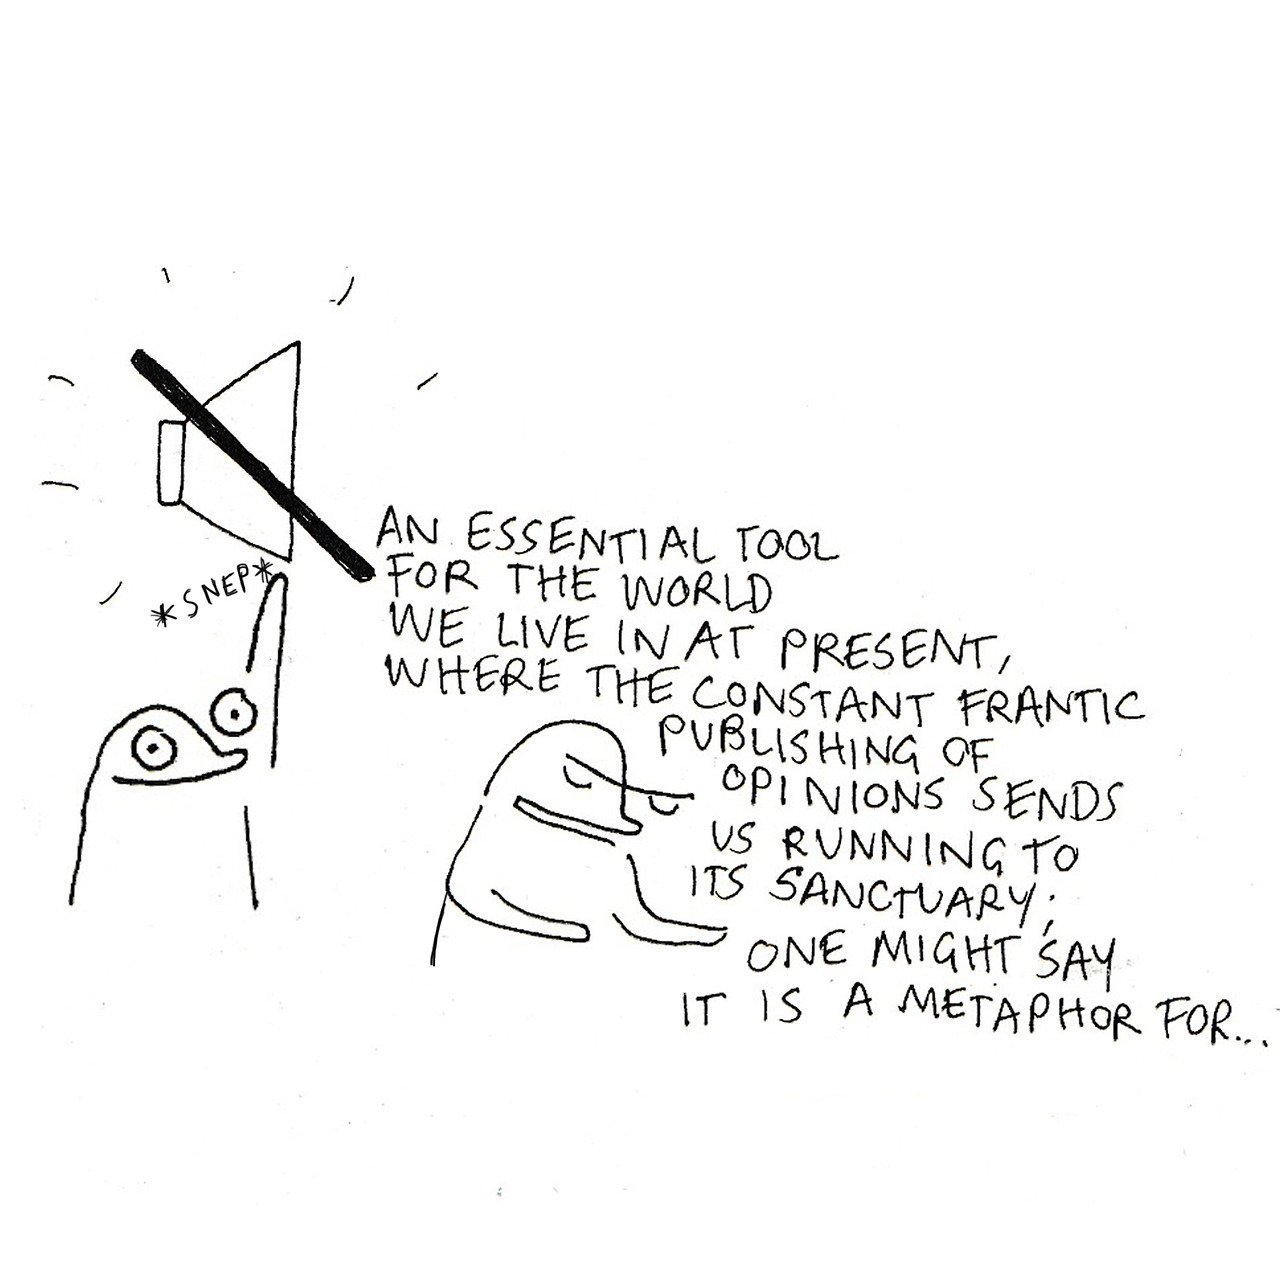 *SNEP*
AN ESSENTIAL TOOL
FOR THE WORLD
WE LIVE IN AT PRESENT,
WHERE THE CONSTANT FRANTIC
PUBLISHING OF
OPINIONS SENDS
US RUNNING TO
ITS SANCTUARY;
ONE MIGHT SAY
IT IS A METAPHOR FOR...